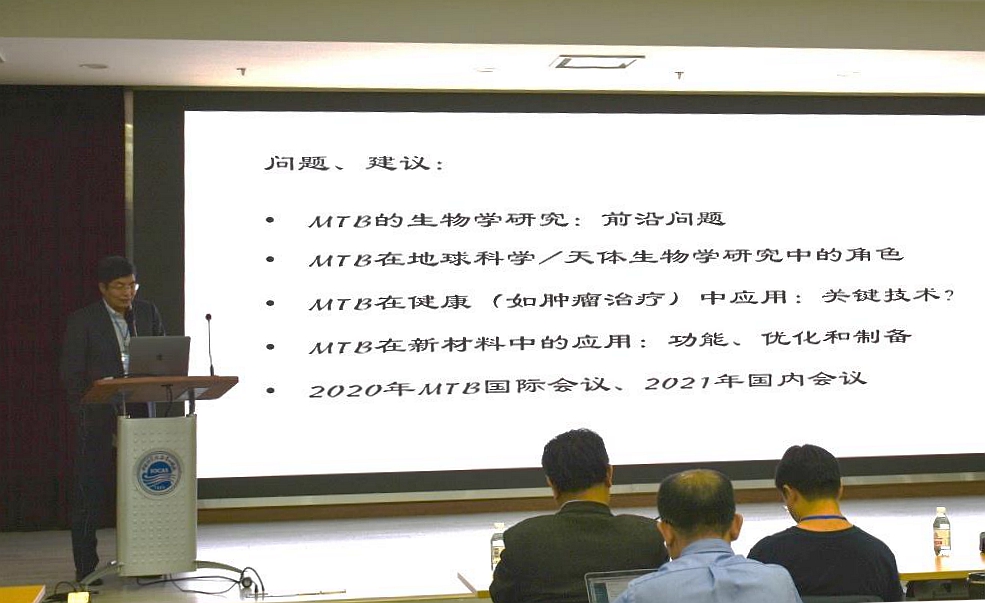 问题、建议：
• MTB的生物学研究：前沿问题
• MTB在地球科学／天体生物学研究中的角色
• MTB在健康（如肿瘤治疗）中应用：关键技术？
• MTB在新材料中的应用：功能、优化和制备
• 2020年MTB国际会议、2021年国内会议
IOCAS